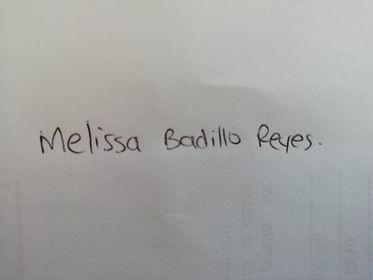 Melissa Badillo Reyes.